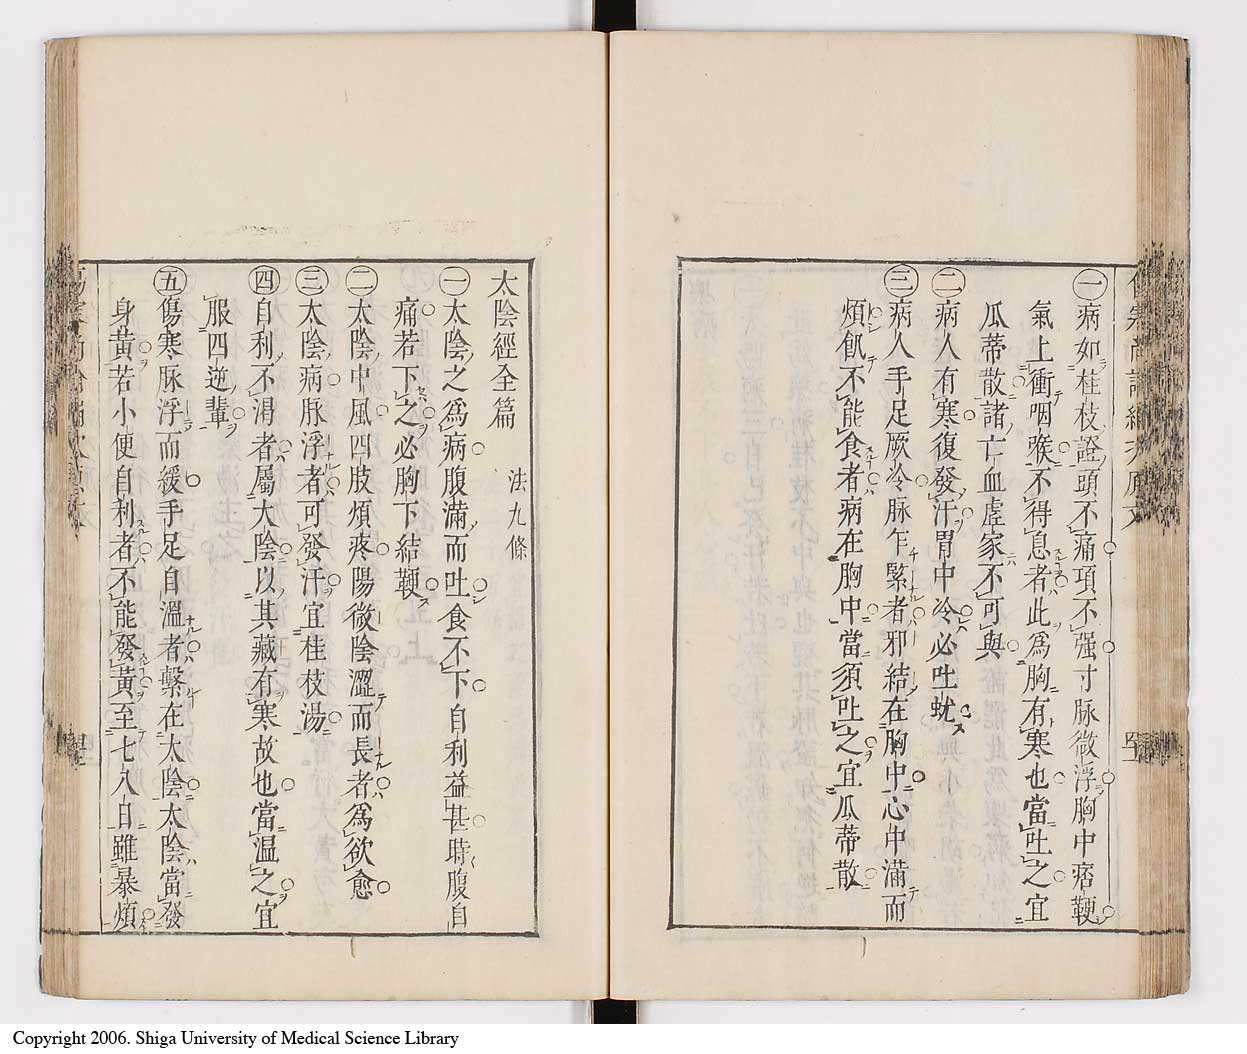 ㊀病如桂枝證頭不痛項不强寸脉微浮胸中痞鞕
氣上衝咽喉不得息者此爲胸有寒也當吐之宜
瓜蒂散諸亡血虛家不可與
㊁病人有寒復發汗胃中冷必吐蚘
㊂病人手足厥冷脉乍緊者邪結在胸中心中滿而
煩飢不能食者病在胸中當須吐之宜瓜蒂散
太陰經全篇 法九條
㊀太陰之爲病腹滿而吐食不下自利益甚時腹自
痛若下之必胸下結鞕
㊁太陰中風四肢煩疼陽微陰澀而長者爲欲愈
㊂太陰病脉浮者可發汗宜桂枝湯
㊃自利不渇者屬太陰以其藏有寒故也當温之宜
服四逆輩
㊄傷寒脉浮而緩手足自溫者繫在太陰太陰當發
身黃若小便自利者不能發黃至七八日雖暴煩
Copyright 2006. Shiga University of Medical Science Library